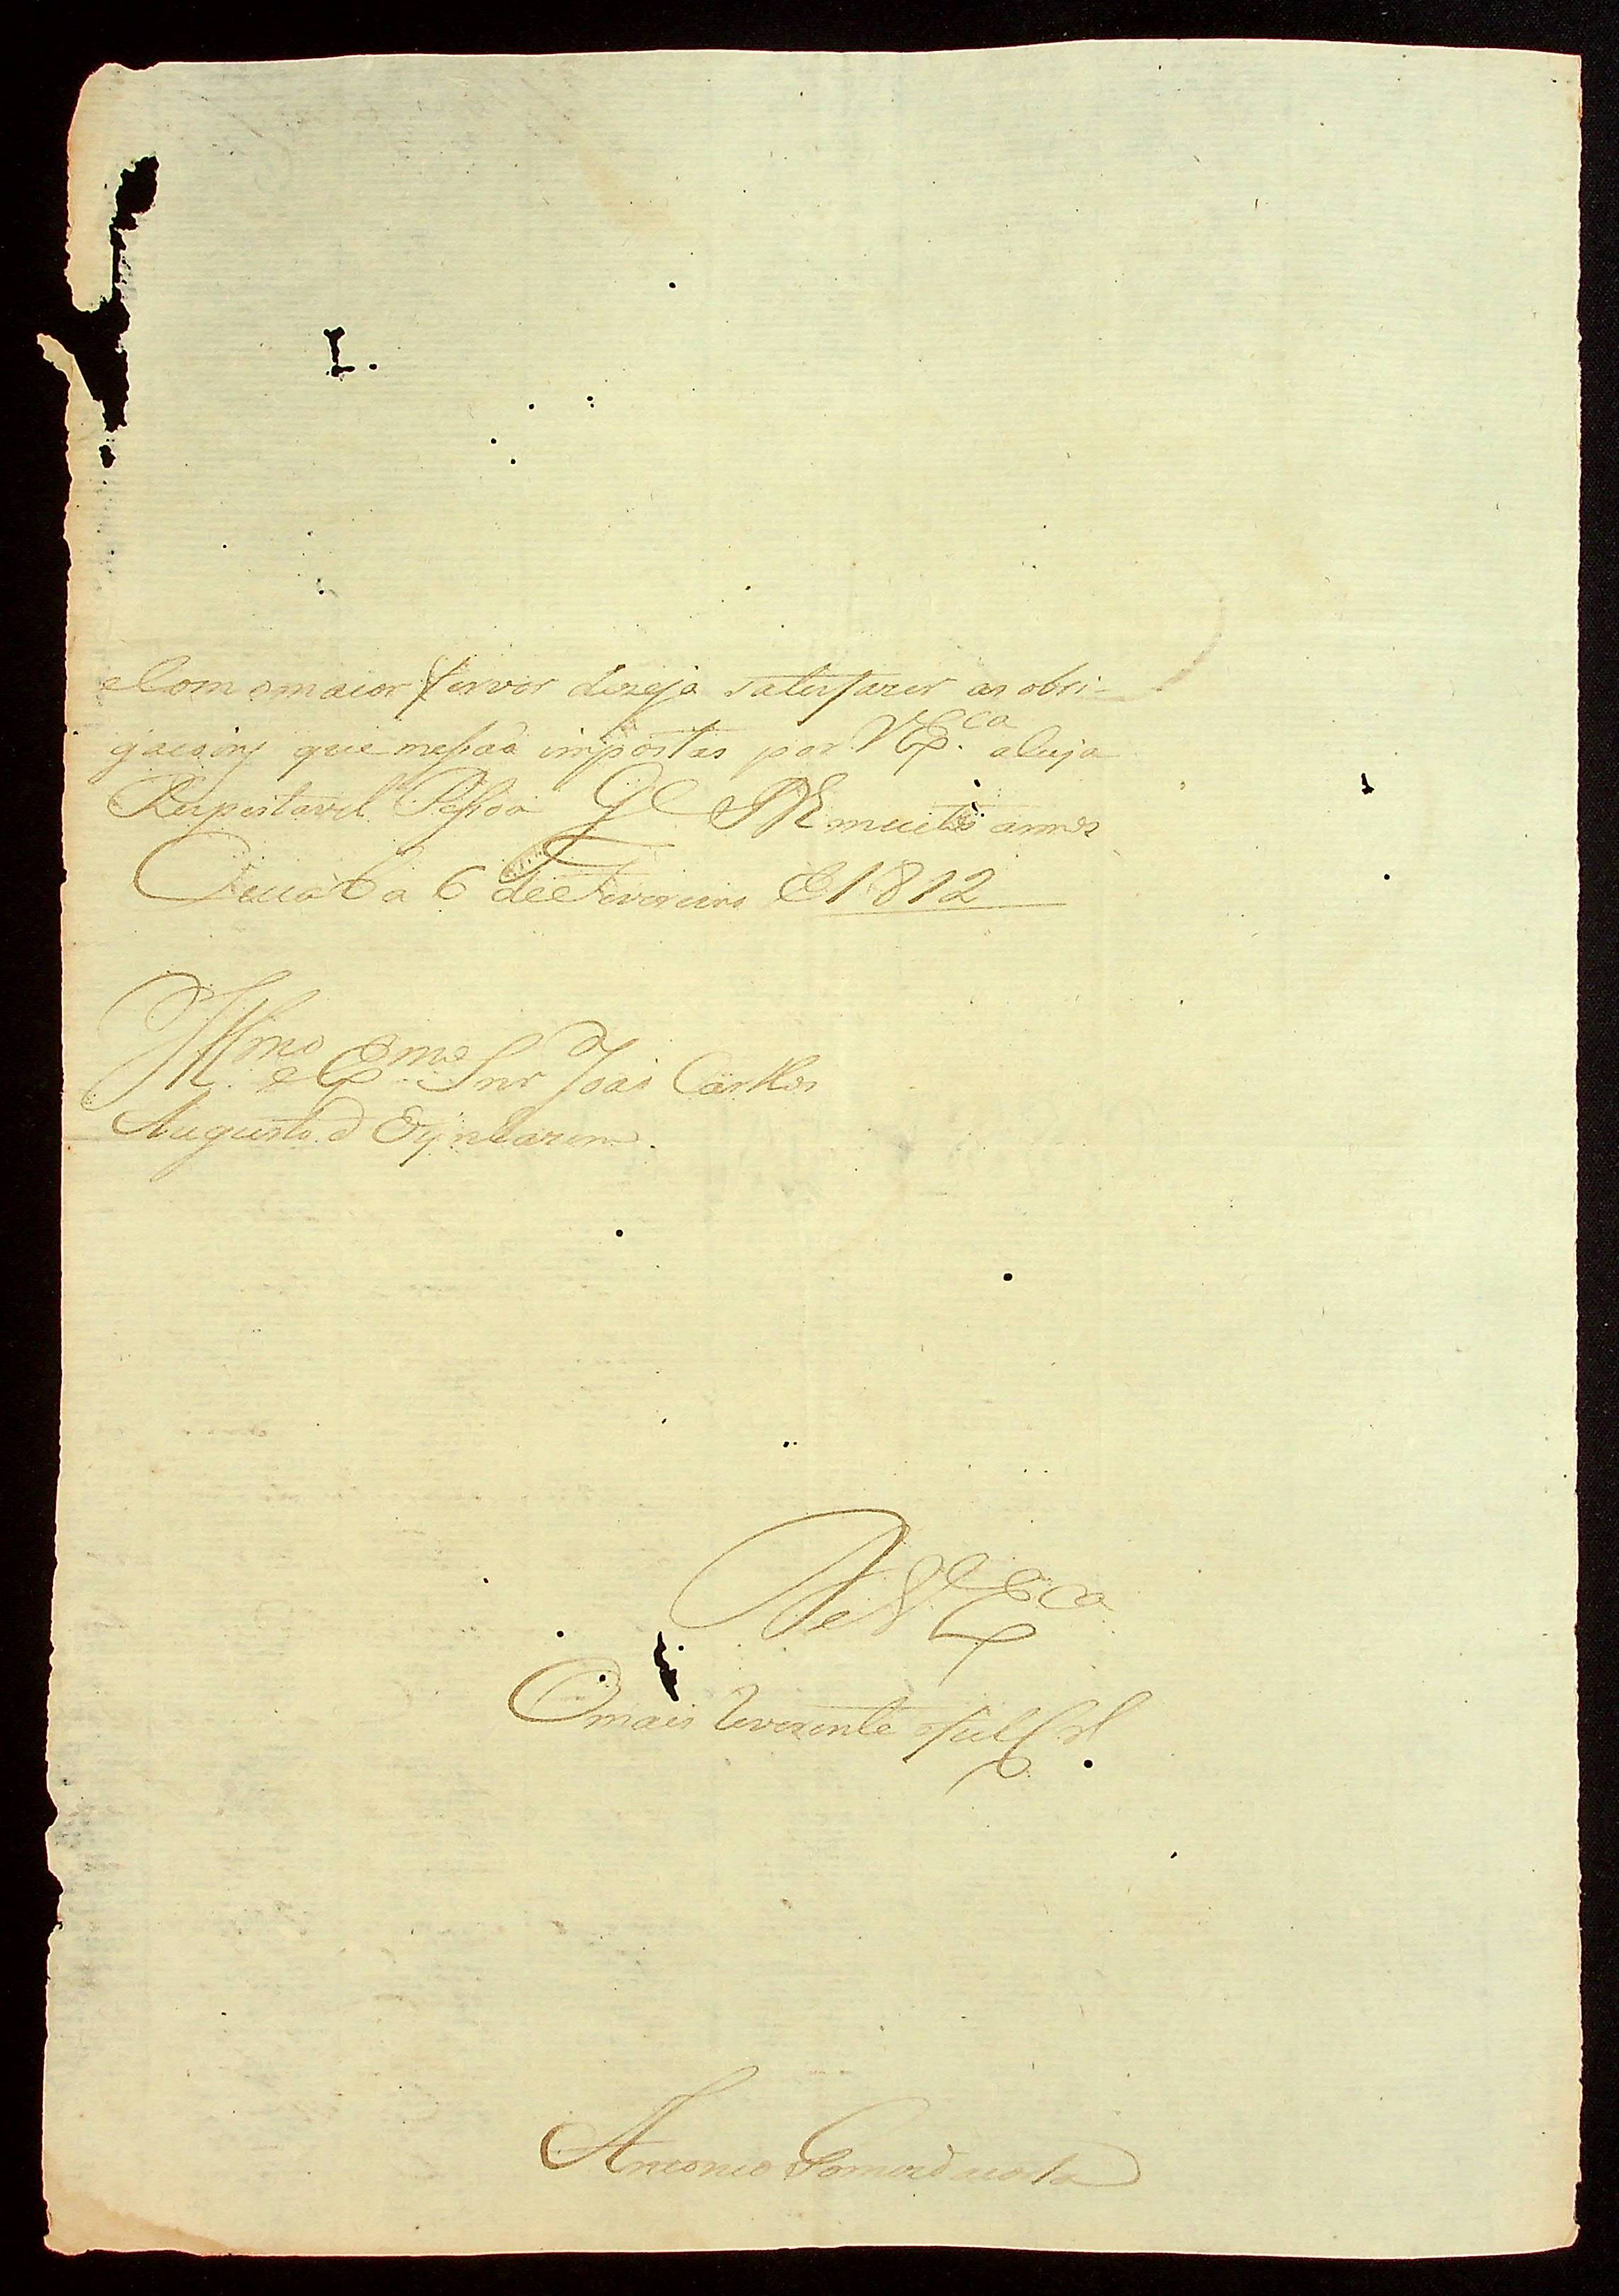 eCom omaior fervor dezeja satisfazer as obri-
gacoins que mesaõ impostas por VEx.ca aCuja
Respeitavel Pessoa G.e D.s muitos annos
Cuiabá 6 de Fevereiro de 1812
Ill.mo e Ex.mo Snr João Carllos
Augusto d Oÿnhauzem.
De V Ex.ca
O mais Reverente e fiel
Antonio Gomes dacosta